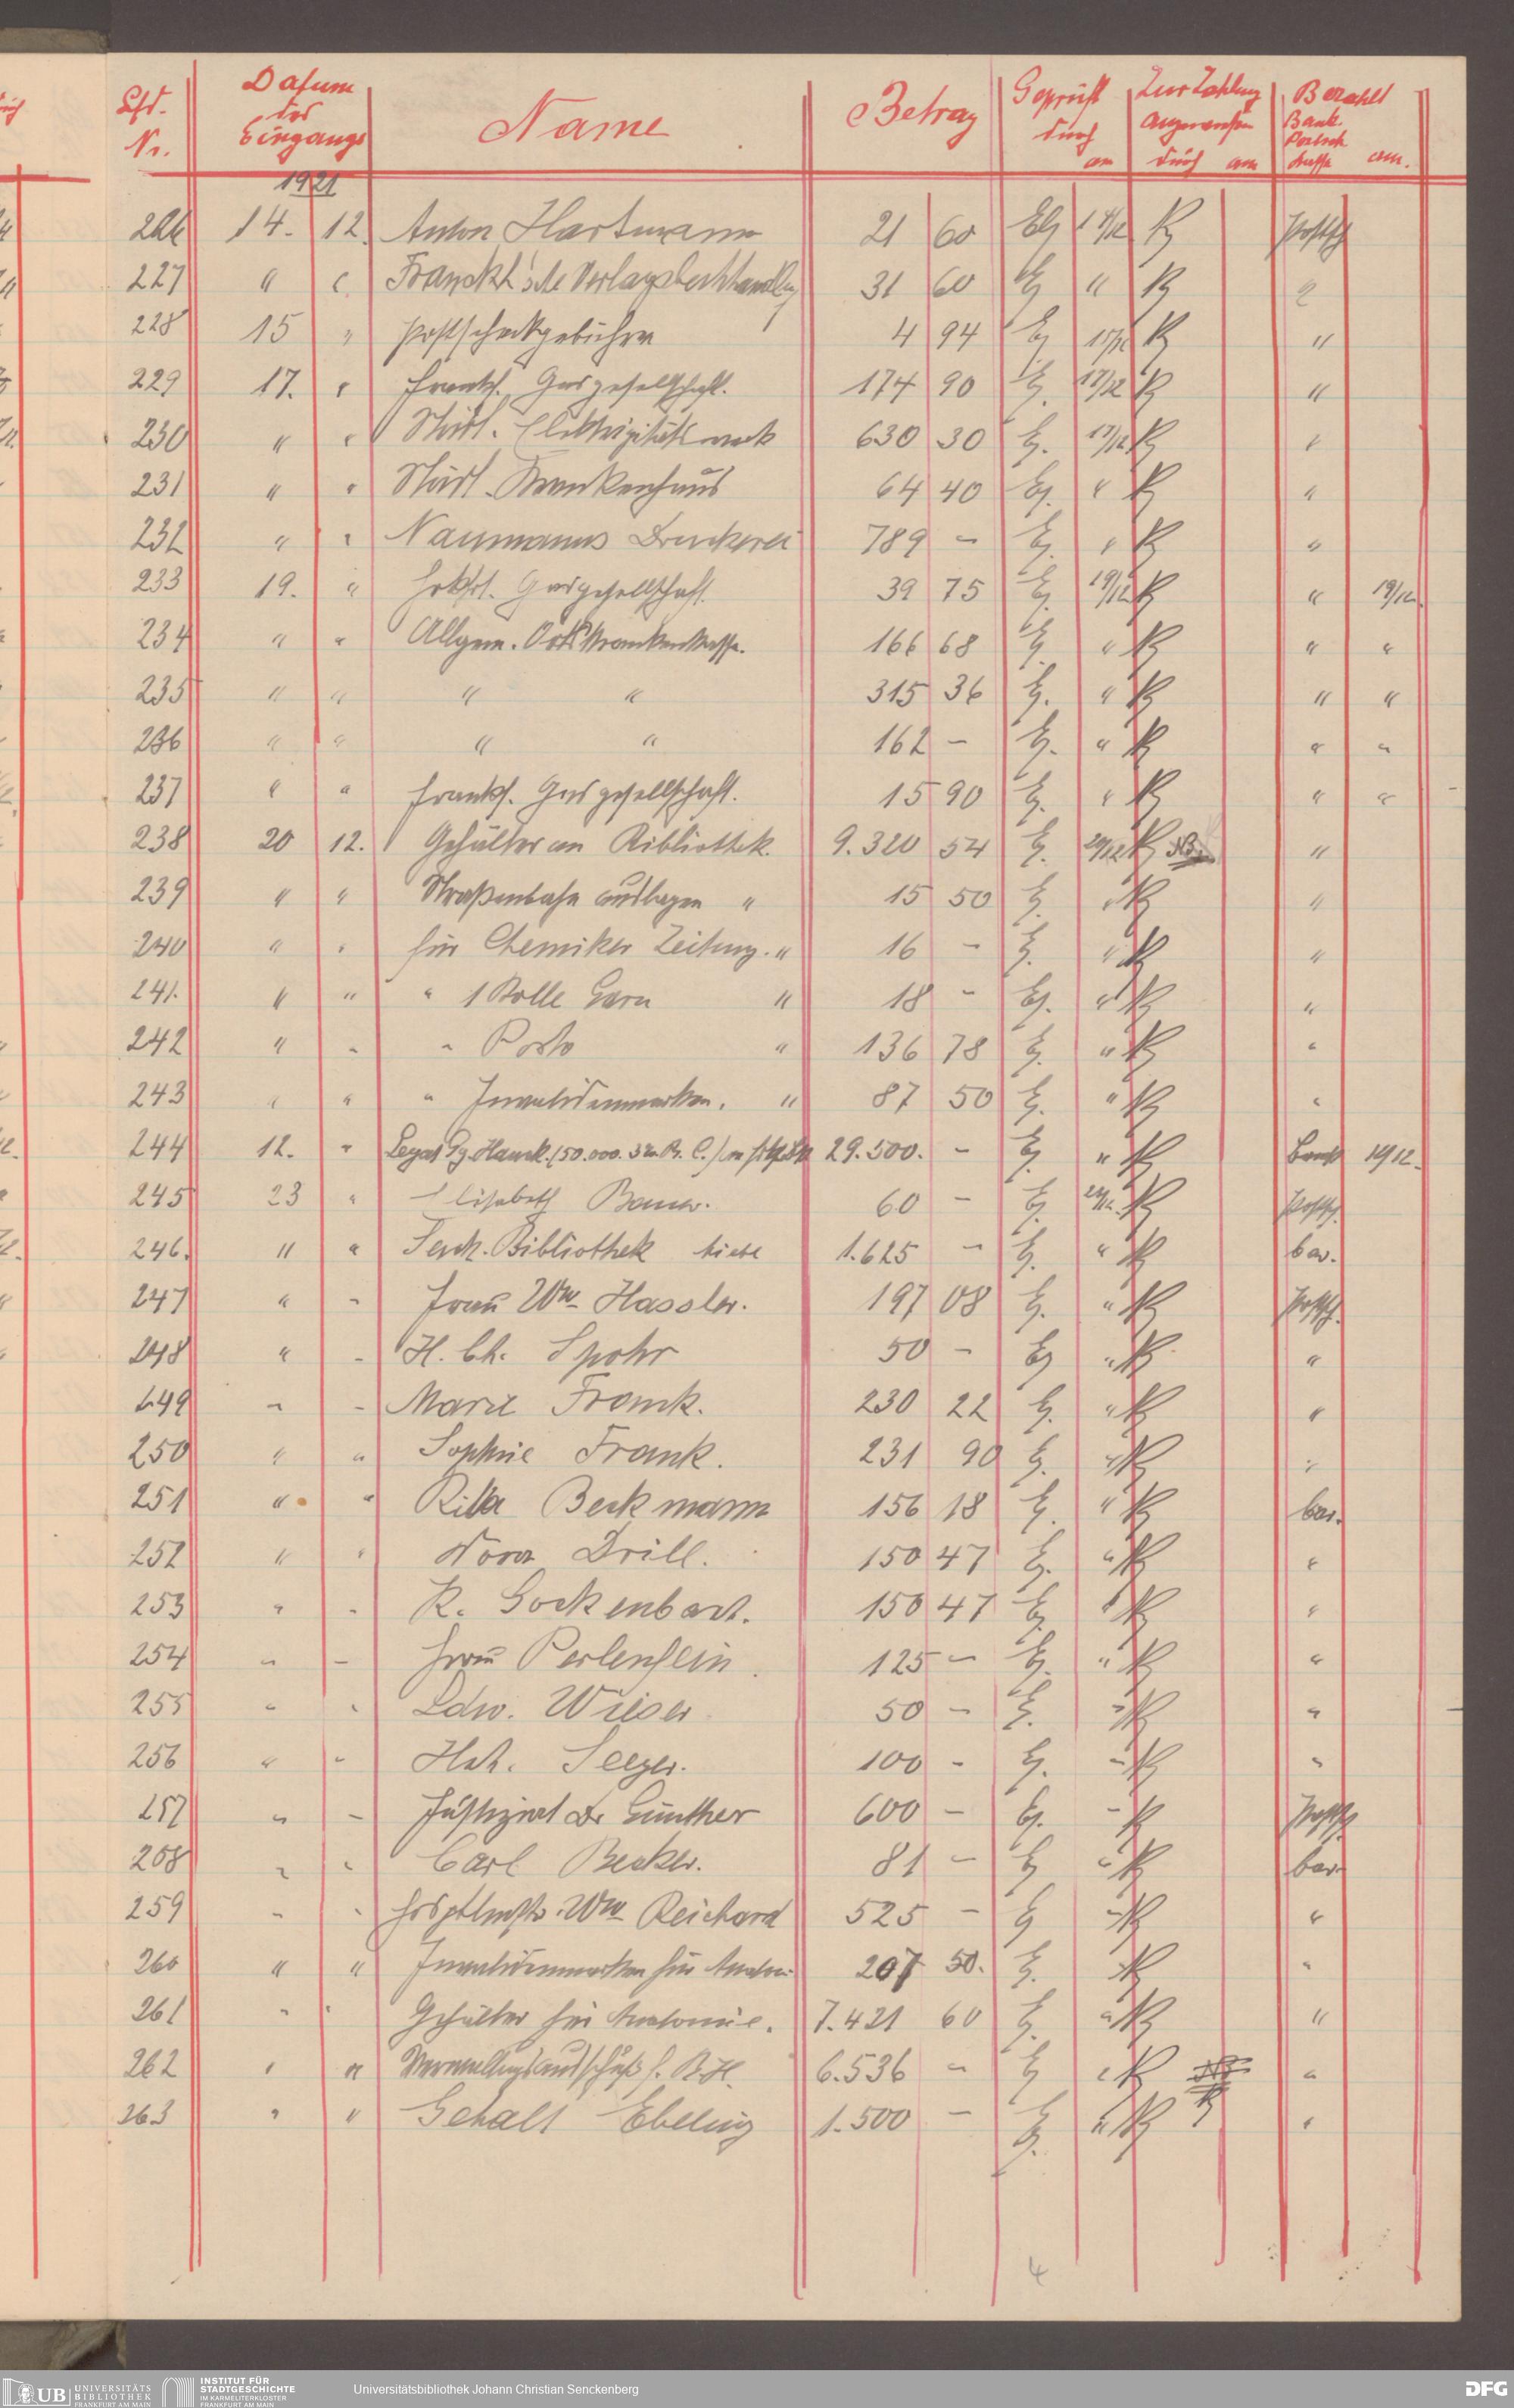 Lfd. Nr. Datum des Eingangs Name Betrag Geprüft durch am Zur Zahlung angewiesen durch am Bezahlt Bank Postsch Kasse am.
1921
226 14. 12. Anton Hartmann 21 60 Eg 14/12 Postsch
227 " " Franckh'sche Verlagsbuchhandlg 31 60 Eg "
228 15 " Postscheckgebühren 4 94 Eg 15/12 "
229 17. " Frankf. Gasgesellschaft. 174 90 Eg. 17/12 "
230 " " Städt. Elektrizitätswerk 630 30 Eg. 17/12 "
231 " " Städt. Krankenhaus 64 40 Eg. " "
232 " " Naumanns Druckerei 789 – Eg. " "
233 19. " Frkft. Gasgesellschaft. 39 75 Eg. 19/12 " 19/12.
234 " " Allgem. Ortskrankenkasse. 166 68 Eg. " " "
235 " " " " 315 36 Eg. " " "
236 " " " " 162 – Eg. " " "
237 " " Frankf. Gasgesellschaft. 15 90 Eg. " " "
238 20 12. Gehälter an Bibliothek. 9.320 54 Eg. 20/12 "
239 " " Straßenbahn Auslagen " 15 50 Eg. " "
240 " " für Chemiker Zeitung. " 16 – Eg. " "
241. " " " 1 Rolle Garn " 18 – Eg. " "
242 " " " Porto " 136 78 Eg. " "
243 " " " Invalidenmarken. " 87 50 Eg. " "
244 12. " Legat Gg. Hauck. (50.000. 3% Pr. C.) 29.500. – Eg. " Bank 12/12.
245 23 " Elisabeth Bauer. 60 – Eg. Postsch.
246. " " Senck. Bibliothek Miete 1.625 – Eg. " bar.
247 " – Frau Wwe Hassler. 197 08 Eg. " Postsch.
248 " – H. Ch. Spohr 50 – Eg " "
249 " – Marie Franck. 230 22 Eg. " "
250 " " Sophie Frank. 231 90 Eg. " "
251 " " Rika Beckmann 156 18 Eg. " bar.
252 " " Nora Drill. 150 47 Eg. " "
253 " " K. Gockenbart. 150 47 Eg. " "
254 " – Frau Perlenfein. 125 – Eg. " "
255 " " Ldw. Wieser 50 – Eg. " "
256 " " Hch. Seeger. 100 – Eg. " "
257 " – Justizrat Dr Günther 600 – Eg. – Postsch.
258 " " Carl Becker. 81 – Eg " bar
259 – " Wwe Reichard 525 – Eg " "
260 " " Invalidenmarken für Anatom. 207 50. Eg. "
261 " " Gehälter für Anatomie. 7.421 60 Eg. " "
262 " " Verwaltungsausschuß f. B.H. 6.536 – Eg " "
263 " " Gehalt Ebeling 1.500 – Eg. " "
4
UB UNIVERSITÄTS BIBLIOTHEK FRANKFURT AM MAIN
INSTITUT FÜR STADTGESCHICHTE IM KARMELITERKLOSTER FRANKFURT AM MAIN
Universitätsbibliothek Johann Christian Senckenberg
DFG